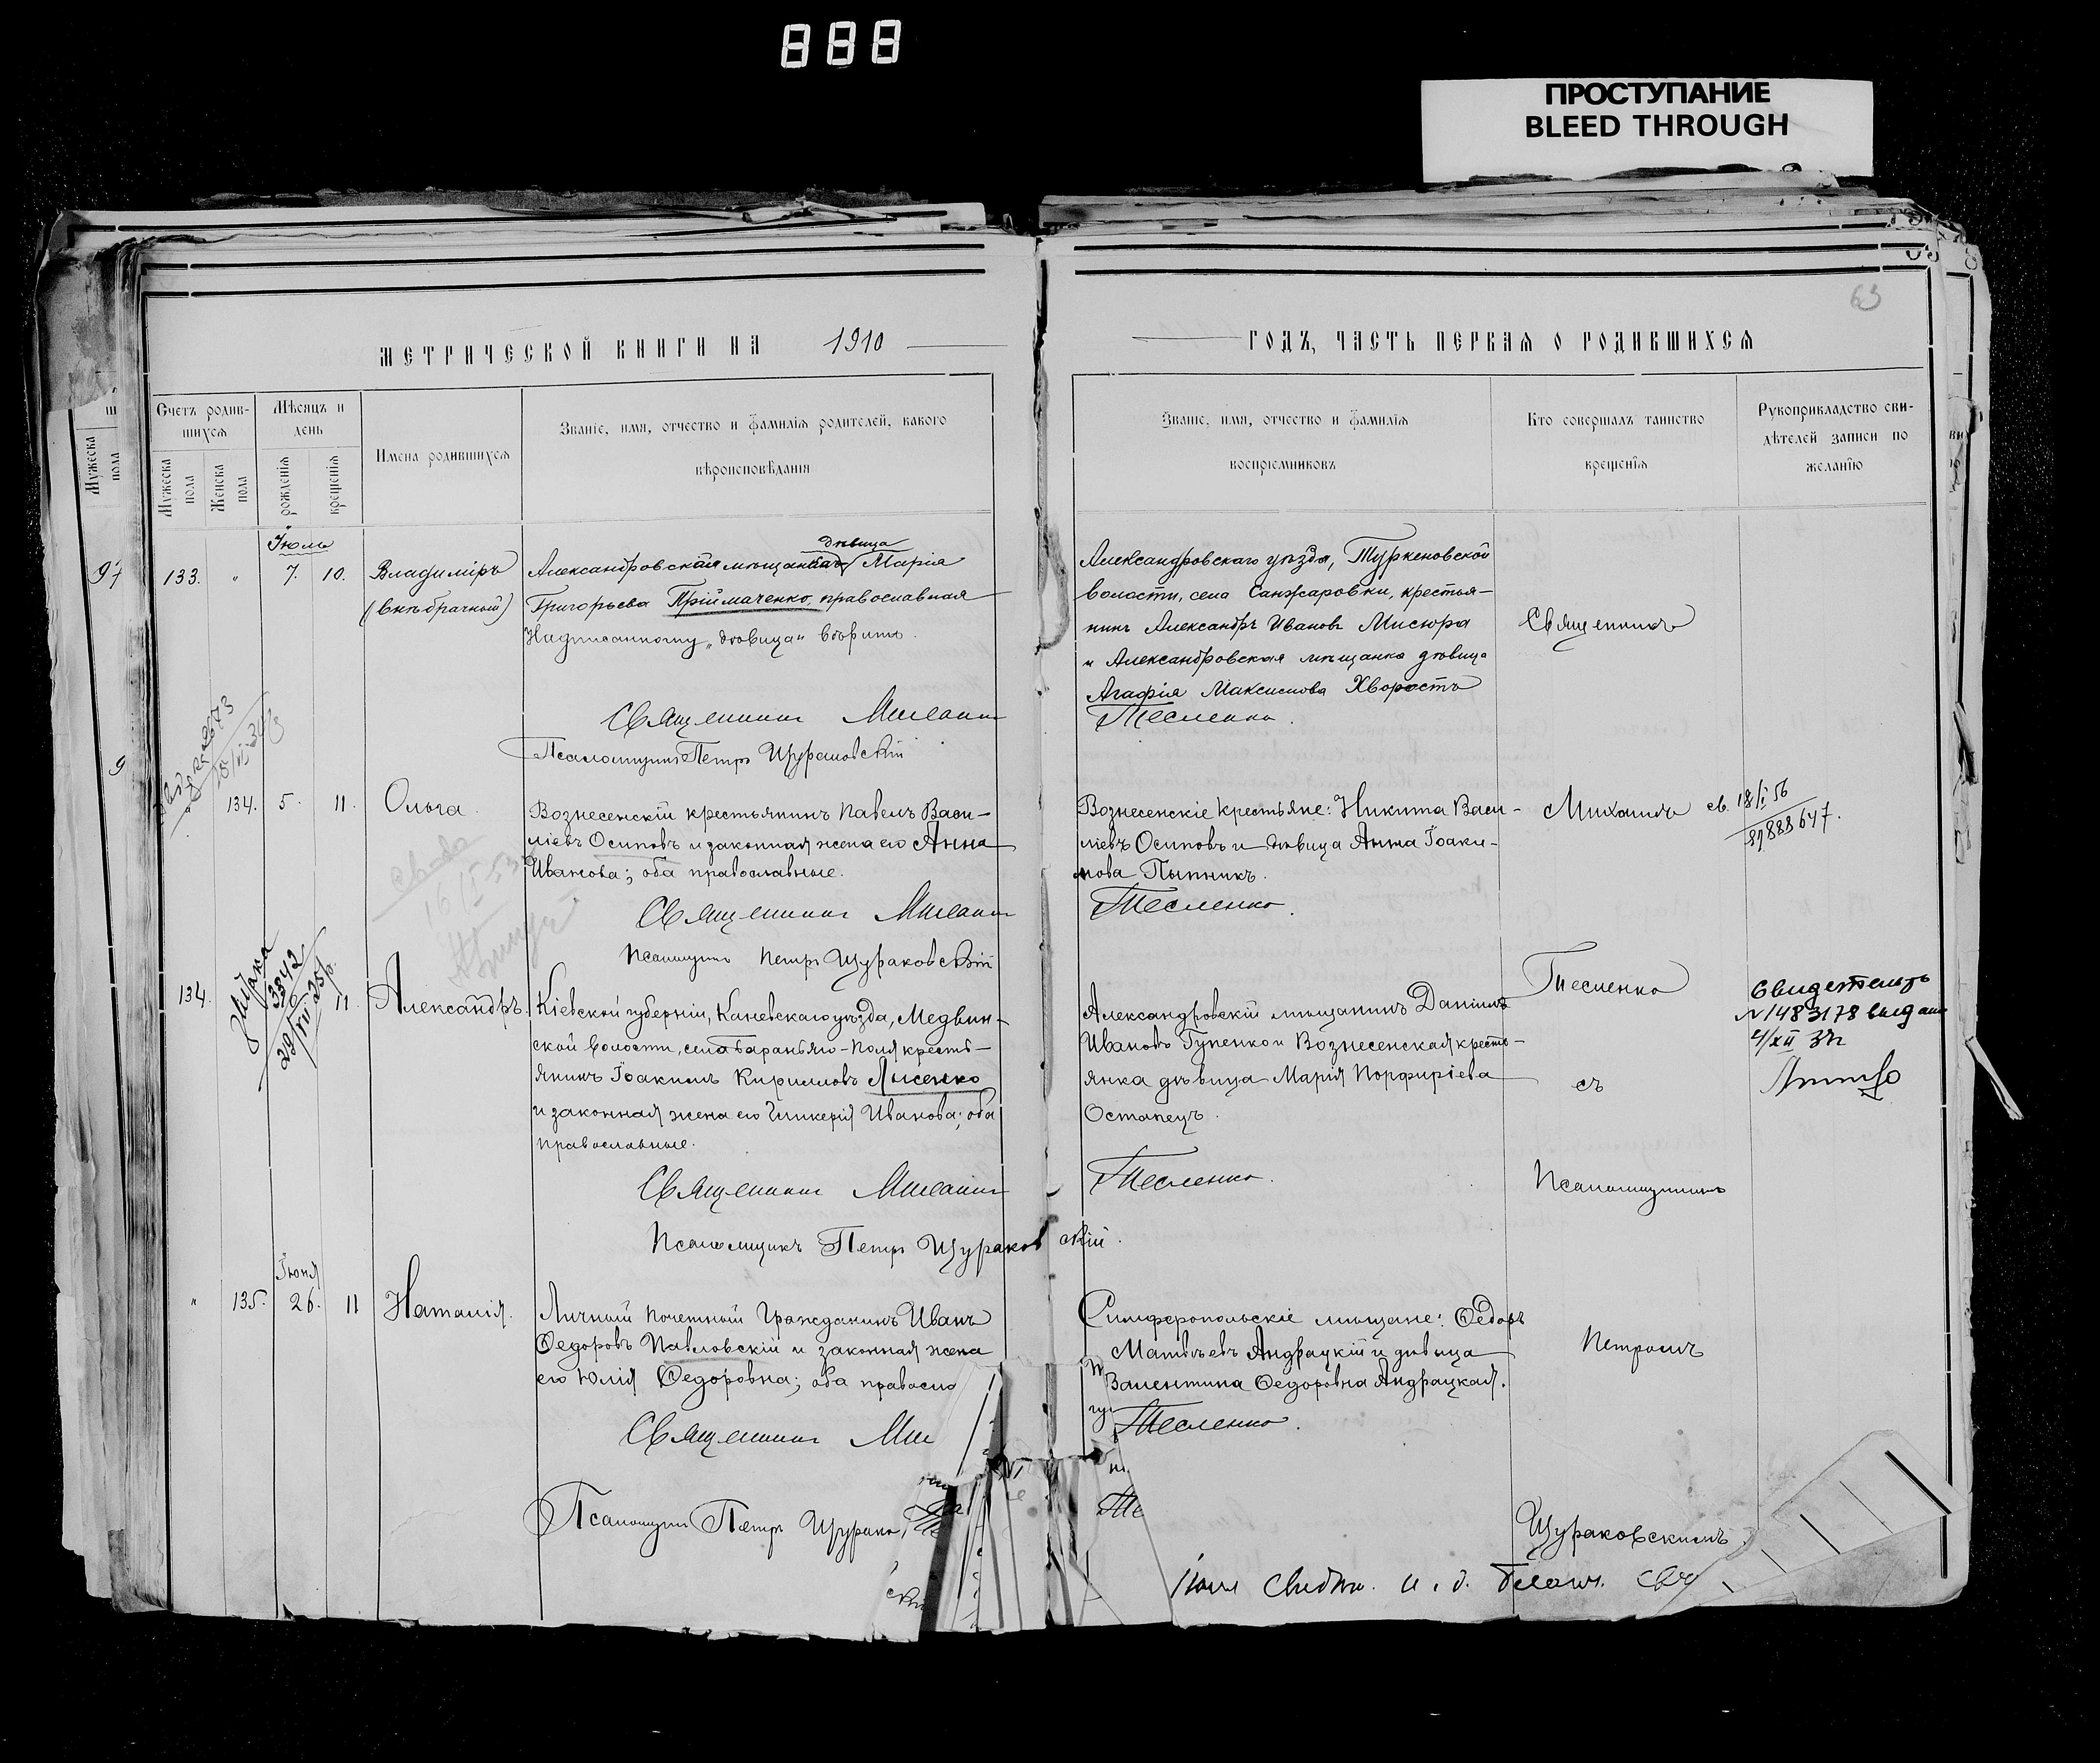 888
ПРОСТУПАНИЕ
BLEED THROUGH
63
МЕТРИЧЕСКОЙ КНИГИ НА 1910
ГОДЪ, ЧАСТЬ ПЕРВАЯ О РОДИВШИХСЯ
Мужеска пола
Счетъ родившихся
Мужеска пола
Женска пола
Мѣсяцъ и день
рожденія
крещенія
Имена родившихся
Званіе, имя, отчество и фамилія родителей, какого
вѣроисповѣданія
Званіе, имя, отчество и фамилія
воспріемниковъ
Кто совершалъ таинство
крещенія
Рукоприкладство сви-
дѣтелей записи по
желанію
Іюль
133. " 7. 10.
Владиміръ
(внѣбрачный)
дѣвица
Александровская мѣщанка Марія
Григорьева Пріймаченко, православная
Надписанному „дѣвица" вѣрить.
Священникъ
Псаломщикъ Петръ Щураковскій
Александровскаго уѣзда, Туркеновской
волости, села Санжаровки, крестья-
нинъ Александръ Ивановъ Мисюра
и Александровская мѣщанка дѣвица
Агафія Максимова Хворостъ
Тесленко.
Священникъ
134. 5. 11.
Ольга.
Вознесенскій крестьянинъ Павелъ Васи-
ліевъ Осиповъ и законная жена его Анна
Иванова; оба православные.
Священникъ
Псаломщикъ Петръ Щураковскій
Вознесенскіе крестьяне: Никита Васи-
ліевъ Осиповъ и дѣвица Анна Іоаки-
мова Пыпникъ.
Тесленко.
Михаилъ
св. 18/I 56
134. 11
3342
Александръ.
Кіевской губерніи, Каневскаго уѣзда, Медвин-
ской волости, села Бараньяго-Поля кресть-
янинъ Іоакимъ Кирилловъ Лисенко
и законная жена его Гликерія Иванова; оба
православные.
Священникъ
Псаломщикъ Петръ Щураковскій.
Александровскій мѣщанинъ Даніилъ
Ивановъ Гупенко и Вознесенская кресть-
янка дѣвица Марія Порфиріева
Остапецъ.
Тесленко.
Тесленко
съ
Псаломщикомъ
Свидетельс
№1483178 выдано
4/XII 37г
Іюня
" 135. 26. 11
Наталія.
Личный Почетный Гражданинъ Иванъ
Федоровъ Павловскій и законная жена
его Юлія Федоровна; оба правосла
Священникъ
Псаломщикъ Петръ Щурако
Симферопольскіе мѣщане: Федоръ
Матвѣевъ Андрацкій и дѣвица
Валентина Федоровна Андрацкая.
Тесленко.
Петромъ
Щураковскимъ.